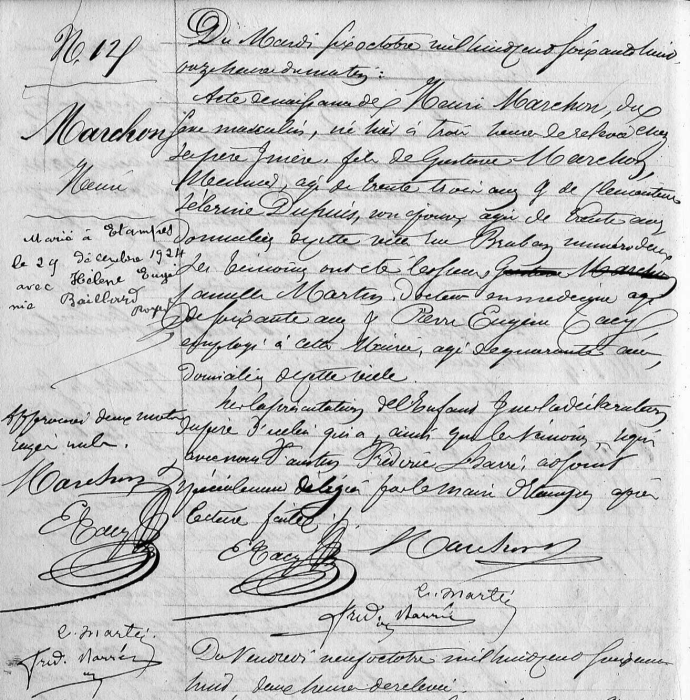 N. 125
Marchon
Henri
Marié à Etampes
le 29 décembre 1924
avec Hélène Eugé
nie Baillard
Du Mardi six octobre mil huit cent soixante huit
onze heures du matin :
Acte de naissance de Henri Marchon, du
sexe masculin, né hier à trois heures de relevée chez
ses père & mère, fils de Gustave Marchon,
âgé de trente trois ans & de Clémentine
Dupuis, son épouse, âgée de trente ans
domiciliés en cette ville rue Braban numéro deux
Les témoins ont été les sieurs Gustave Marchon
Camille Martin, Docteur en médecine âgé
de soixante ans & Pierre Eugène Cacy
employé à cette Mairie, âgé de quarante ans,
domiciliés en cette ville.
Sur la présentation de l'Enfant & sur la déclaration
du père d'icelui qui a, ainsi que les témoins, signé
avec nous Frédéric Barré, adjoint
spécialement délégué par le maire d'Etampes après
lecture faite :
Approuvé deux mots
rayés nuls.
Marchon
E Cacy
C. Martin
Fréd. Barré
E Cacy
Marchon
C. Martin
Fréd. Barré
Du Vendredi neuf octobre mil huit cent soixante
huit deux heures de relevée.